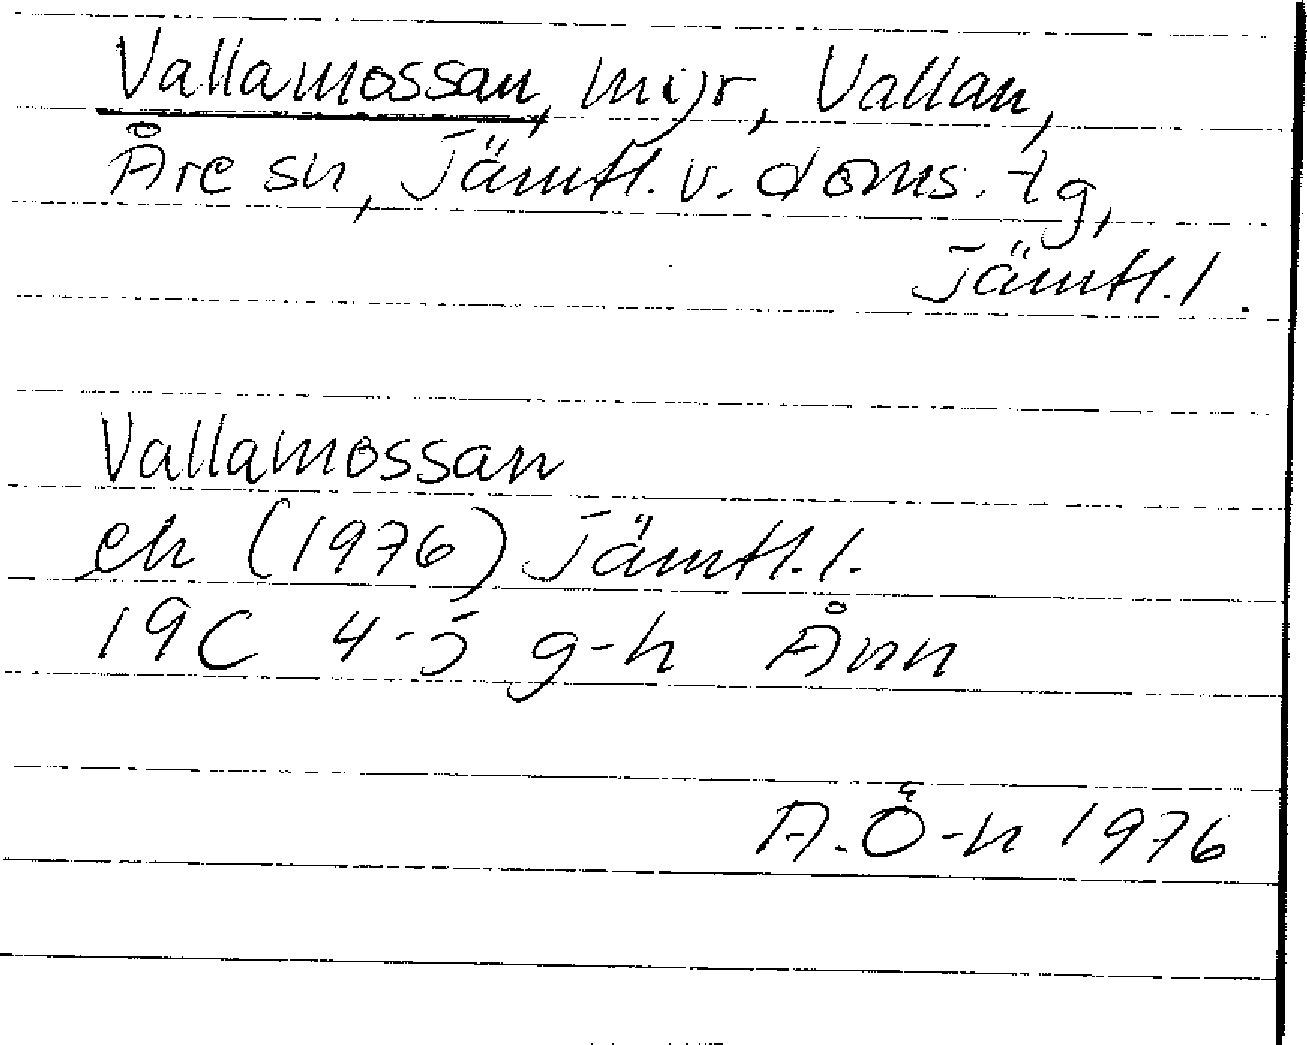 Vallamossan, myr, Vallan,
Åre sn, Jämtl. v. doms. tg,
Jämtl. l.
Vallamossan
ek (1976) Jämtl. l.
19C 4-5 g-h Ånn
A. Ö-n 1976